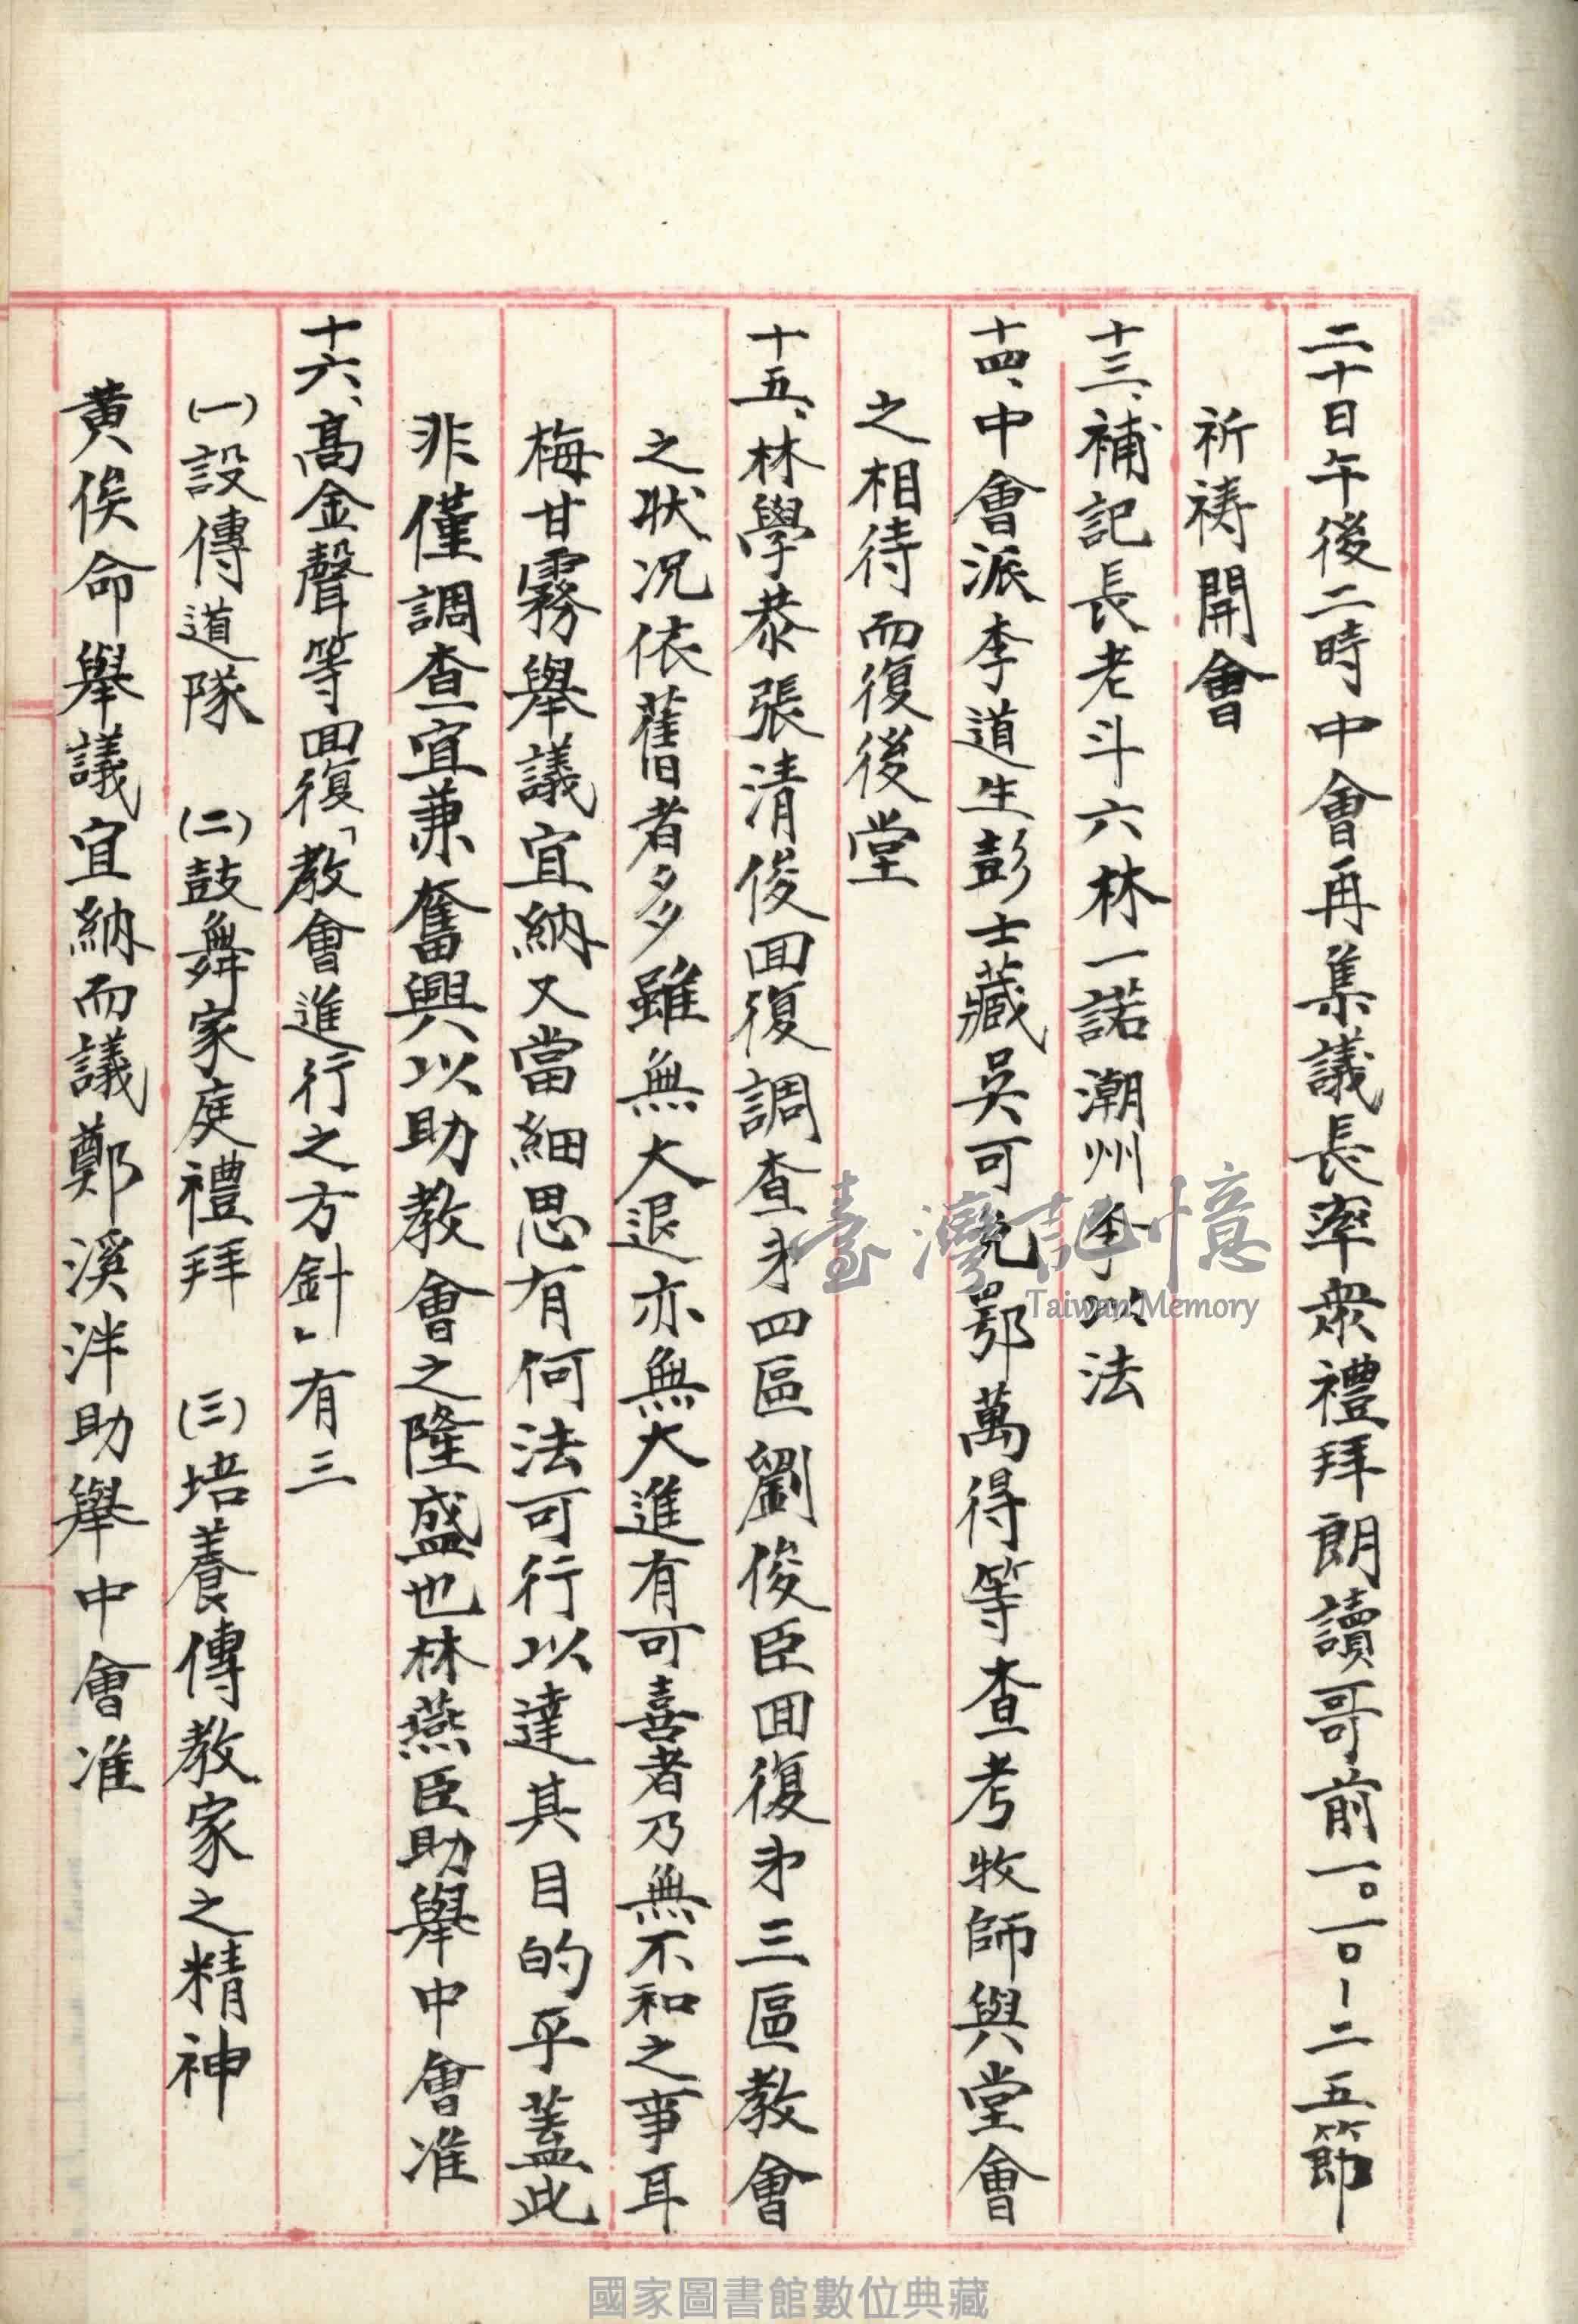 二十日午後二時中會再集議長率衆禮拜朗讀哥前一〇·一〇-二五節
祈禱開會
十三、補記長老斗六林一諾潮州李以法
十四、中會派李道生彭士藏吳可免鄂萬得等查考牧師與堂會
之相待而復後堂
十五、林學恭張清俊回復調查弟四區劉俊臣回復弟三區教會
之狀況依舊者多多雖無大退亦無大進有可喜者乃無不和之事耳
梅甘霧舉議宜納又當細思有何法可行以達其目的乎蓋此
非僅調查宜兼奮興以助教會之隆盛也林燕臣助舉中會准
十六、高金聲等回復「教會進行之方針」有三
㈠設傳道隊 ㈡鼓舞家庭禮拜 ㈢培養傳教家之精神
黃俟命舉議宜納而議鄭溪泮助舉中會准
臺灣記憶
Taiwan Memory
國家圖書館數位典藏